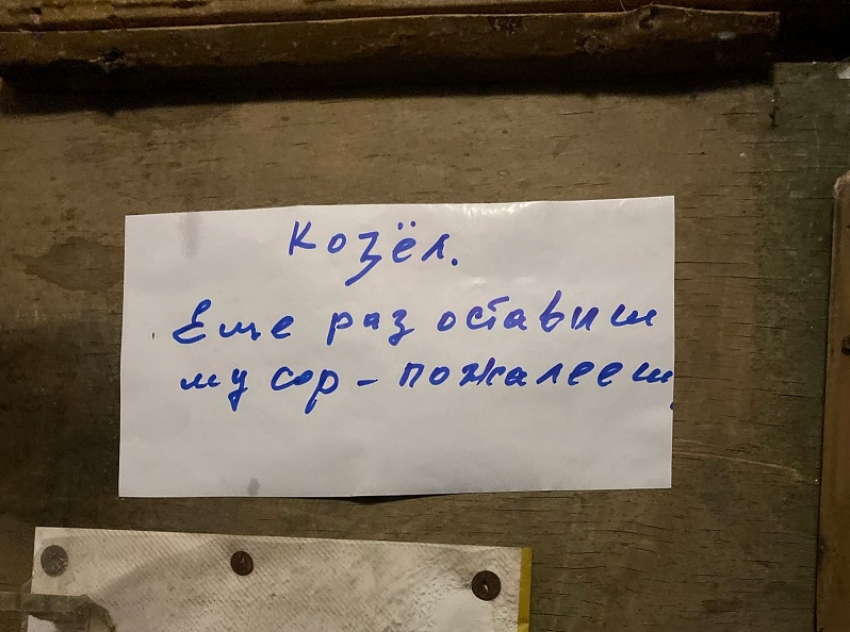 Козёл.
Еще раз оставиш
мусор - пожалееш